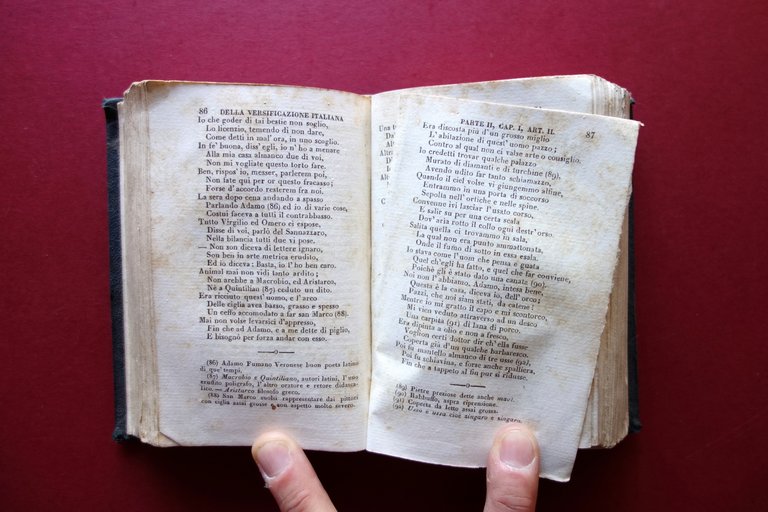 86 DELLA VERSIFICAZIONE ITALIANA
Io che goder di tai bestie non soglio,
Lo licenzio, temendo di non dare,
Come detti in mal'ora, in uno scoglio.
In fe' buona, diss'egli, io n'ho a menare
Alla mia casa almanco due di voi,
Non mi vogliate questo torto fare.
Ben, rispos'io, messer, parlerem poi,
Non fate qui per or questo fracasso;
Forse d'accordo resterem fra noi.
La sera dopo cena andando a spasso
Parlando Adamo (86) ed io di varie cose,
Costui faceva a tutti il contrabbasso.
Tutto Virgilio ed Omero ci espose,
Disse di voi, parlò del Sannazzaro,
Nella bilancia tutti due vi pose.
— Non son diceva di lettere ignaro,
Son ben in arte metrica erudito,
Ed io diceva: Basta, io l'ho ben caro.
Animal mai non vidi tanto ardito;
Non arebbe a Macrobio, ed Aristarco,
Nè a Quintilian (87) ceduto un dito.
Era ricciuto quest'uomo, e l'arco
Delle ciglia avea basso, grasso e spesso
Un ceffo accomodato a far san Marco (88).
Mai non volse levarsici d'appresso,
Fin che ad Adamo, e a me dette di piglio,
E bisognò per forza andar con esso.
(86) Adamo Fumano Veronese buon poeta latino
di que' tempi.
(87) Macrobio e Quintiliano, autori latini, l'uno
erudito poligrafo, l'altro oratore e retore
lico. — Aristarco filosofo greco.
(88) San Marco suolsi rappresentare dai pittori
con ciglia assai grosse non aspetto molto severo.
PARTE II, CAP. I, ART. II. 87
Era discosta più d'un grosso miglio
L'abitazione di quest'uomo pazzo;
Contro al qual non ci valse arte o consiglio.
Io credetti trovar qualche palazzo
Murato di diamanti e di turchine (89),
Avendo udito far tanto schiamazzo.
Quando il ciel volse vi giungemmo alfine,
Entrammo in una porta di soccorso
Sepolta nell'ortiche e nelle spine.
Convenne ivi lasciar l'usato corso,
E salir su per una certa scala
Dov'aria rotto il collo ogni destr'orso.
Salita quella ci trovammo in sala,
La qual non era punto ammattonata,
Onde il fumo di sotto in essa esala.
Io stava come l'uom che pensa e guata
Quel ch'egli ha fatto, e quel che far conviene,
Poichè gli è stato dato una canata (90).
Noi non l'abbiamo, Adamo, intesa bene,
Questa è la casa, diceva io, dell'orco;
Pazzi, che noi siam stati, da catene!
Mentre io mi gratto il capo e mi scontorco,
Mi vien veduto attraverso ad un desco
Una carpita (91) di lana di porco.
Era dipinta a olio e non a fresco,
Voglion certi dottor dir ch'ella fusse
Coperta già d'un qualche barbaresco.
Poi fu mantello almanco di tre usse (92),
Poi fu schiavina, e forse anche spalliera,
Fin che a tappeto al fin pur si ridusse.
(89) Pietre preziose dette anche
(90) Rabbuffo, aspra riprensione.
(91) Coperta da letto assai grossa.
(92) Ussò e ussa cioè zingaro e zingara.